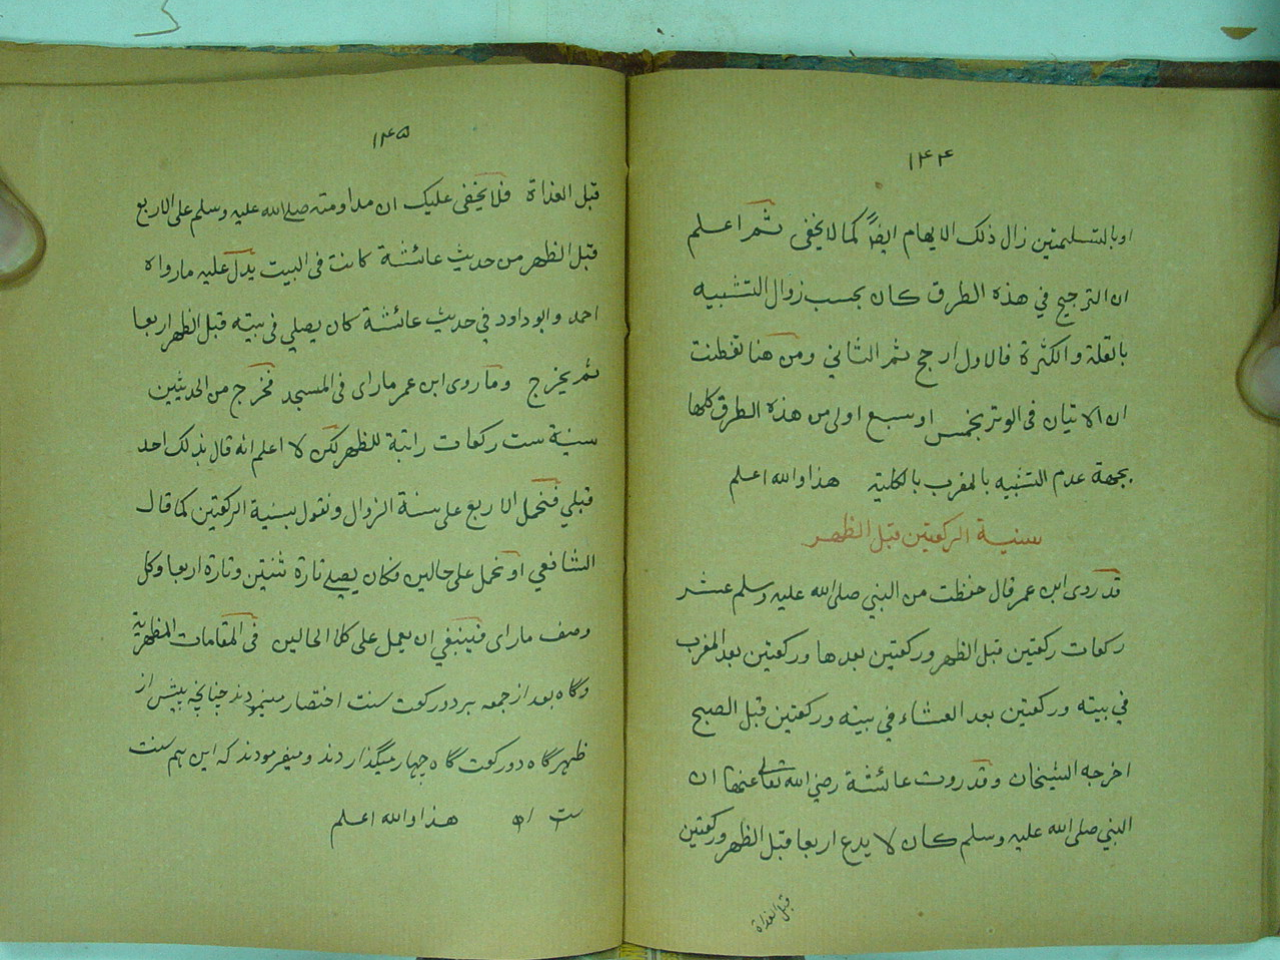 ١٤٤
اوبالتسليمتين زال ذلك الايهام ايضاً كما لا يخفى ثم اعلم
ان الترجيح في هذه الطرق كان بحسب زوال التشبيه
بالقلة والكثرة فالاول ارجح ثم الثاني ومن هنا تفطنت
ان الاتيان فى الوتر بخمس او سبع اولى من هذه الطرق كلها
بجهة عدم التشبيه بالمغرب بالكلية هذا والله اعلم
سنية الركعتين قبل الظهر
قد روى ابن عمر قال حفظت من النبي صلى الله عليه وسلم عشر
ركعات ركعتين قبل الظهر وركعتين بعدها وركعتين بعد المغرب
في بيته وركعتين بعد العشاء في بيته وركعتين قبل الصبح
اخرجه الشيخان وقد روت عائشة رضي الله تعالى عنها ان
النبي صلى الله عليه وسلم كان لا يدع اربعا قبل الظهر وركعتين
قبل الغداة
١٤٥
قبل الغداة فلا يخفى عليك ان مداومته صلى الله عليه وسلم على الاربع
قبل الظهر من حديث عائشة كانت فى البيت يدل عليه ما رواه
احمد وابو داود في حديث عائشة كان يصلي فى بيته قبل الظهر اربعا
ثم يخرج وما روى ابن عمر ما راى فى المسجد فخرج من الحديثين
سنية ست ركعات راتبة للظهر لكن لا اعلم انه قال بذلك احد
قبلي فنحمل الاربع على سنة الزوال ونقول بسنية الركعتين كما قال
الشافعي او نحمل على حالين فكان يصلي تارة ثنتين وتارة اربعا وكل
وصف ما راى فينبغي ان يعمل على كلا الحالين فى المقامات المظهرية
وگاه بعد از جمعه بر دو ركعت سنت اختصار مينمودند چنانچه پيش از
ظهر گاه دو ركعت گاه چهار ميگذاردند وميفرمودند كه اين هم سنت
ست اه هذا والله اعلم